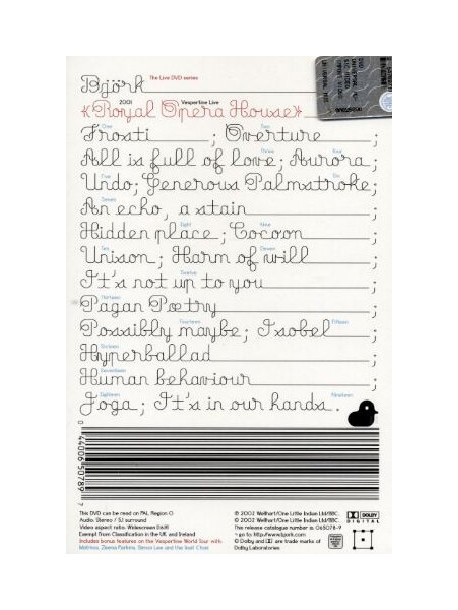 Björk The (Live DVD series
2001 Vespertine Live
«Royal Opera House»
One Two
Frosti ; Overture ;
Three Four
All is full of love; Aurora;
Five Six
Undo; Generous Palmstroke;
Seven
An echo, a stain ;
Eight Nine
Hidden place; Cocoon ;
Ten Eleven
Unison; Harm of will ;
Twelve
It's not up to you ;
Thirteen
Pagan Poetry ;
Fourteen Fifteen
Possibly maybe; Isobel ;
Sixteen
Hyperballad ;
Seventeen
Human behaviour ;
Eighteen Nineteen
Joga; It's in our hands.
0 44006 50789 7
This DVD can be read on PAL, Region 0
Audio: Stereo / 5.1 surround
Video aspect ratio: Widescreen (16:9)
Exempt from Classification in the UK and Ireland
Includes bonus features on the Vespertine World Tour with:
Matmos, Zeena Parkins, Simon Lee and the Inuit Choir
© 2002 Wellhart/One Little Indian Ltd/BBC.
℗ 2002 Wellhart/One Little Indian Ltd/BBC.
This release catalogue number is 065078-9
go to: http://www.bjork.com
© Dolby and are trade marks of
Dolby Laboratories.
DOLBY
DIGITAL